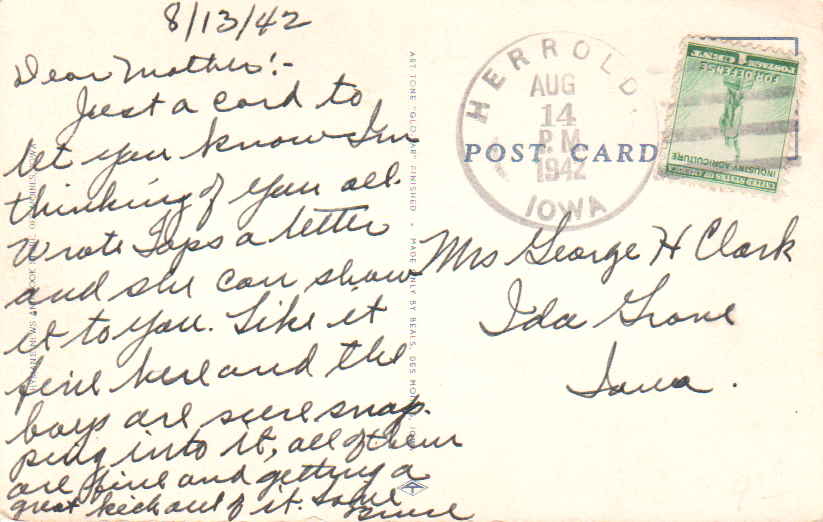 8/13/42
Dear Mother:-
Just a card to
let you know I'm
thinking of you all.
Wrote Taps a letter
and she can show
it to you. Like it
fine here and the
boys are sure snap-
ping into it, all of them
are fine and getting a
great kick out of it. Love
Bruce
ART TONE "GLO-VAR" FINISHED
MADE ONLY BY BEALS, DES MOINES, IOWA
HYMAN'S NEWS AND BOOK STORE, DES MOINES, IOWA
POST CARD
HERROLD,
AUG
14
P.M
1942
IOWA
UNITED STATES OF AMERICA
INDUSTRY AGRICULTURE
FOR DEFENSE
1 CENT 1
POSTAGE
Mrs George H Clark
Ida Grove
Iowa.